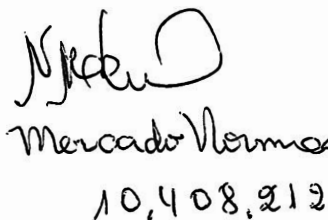 Mercado Norma
10,408,212